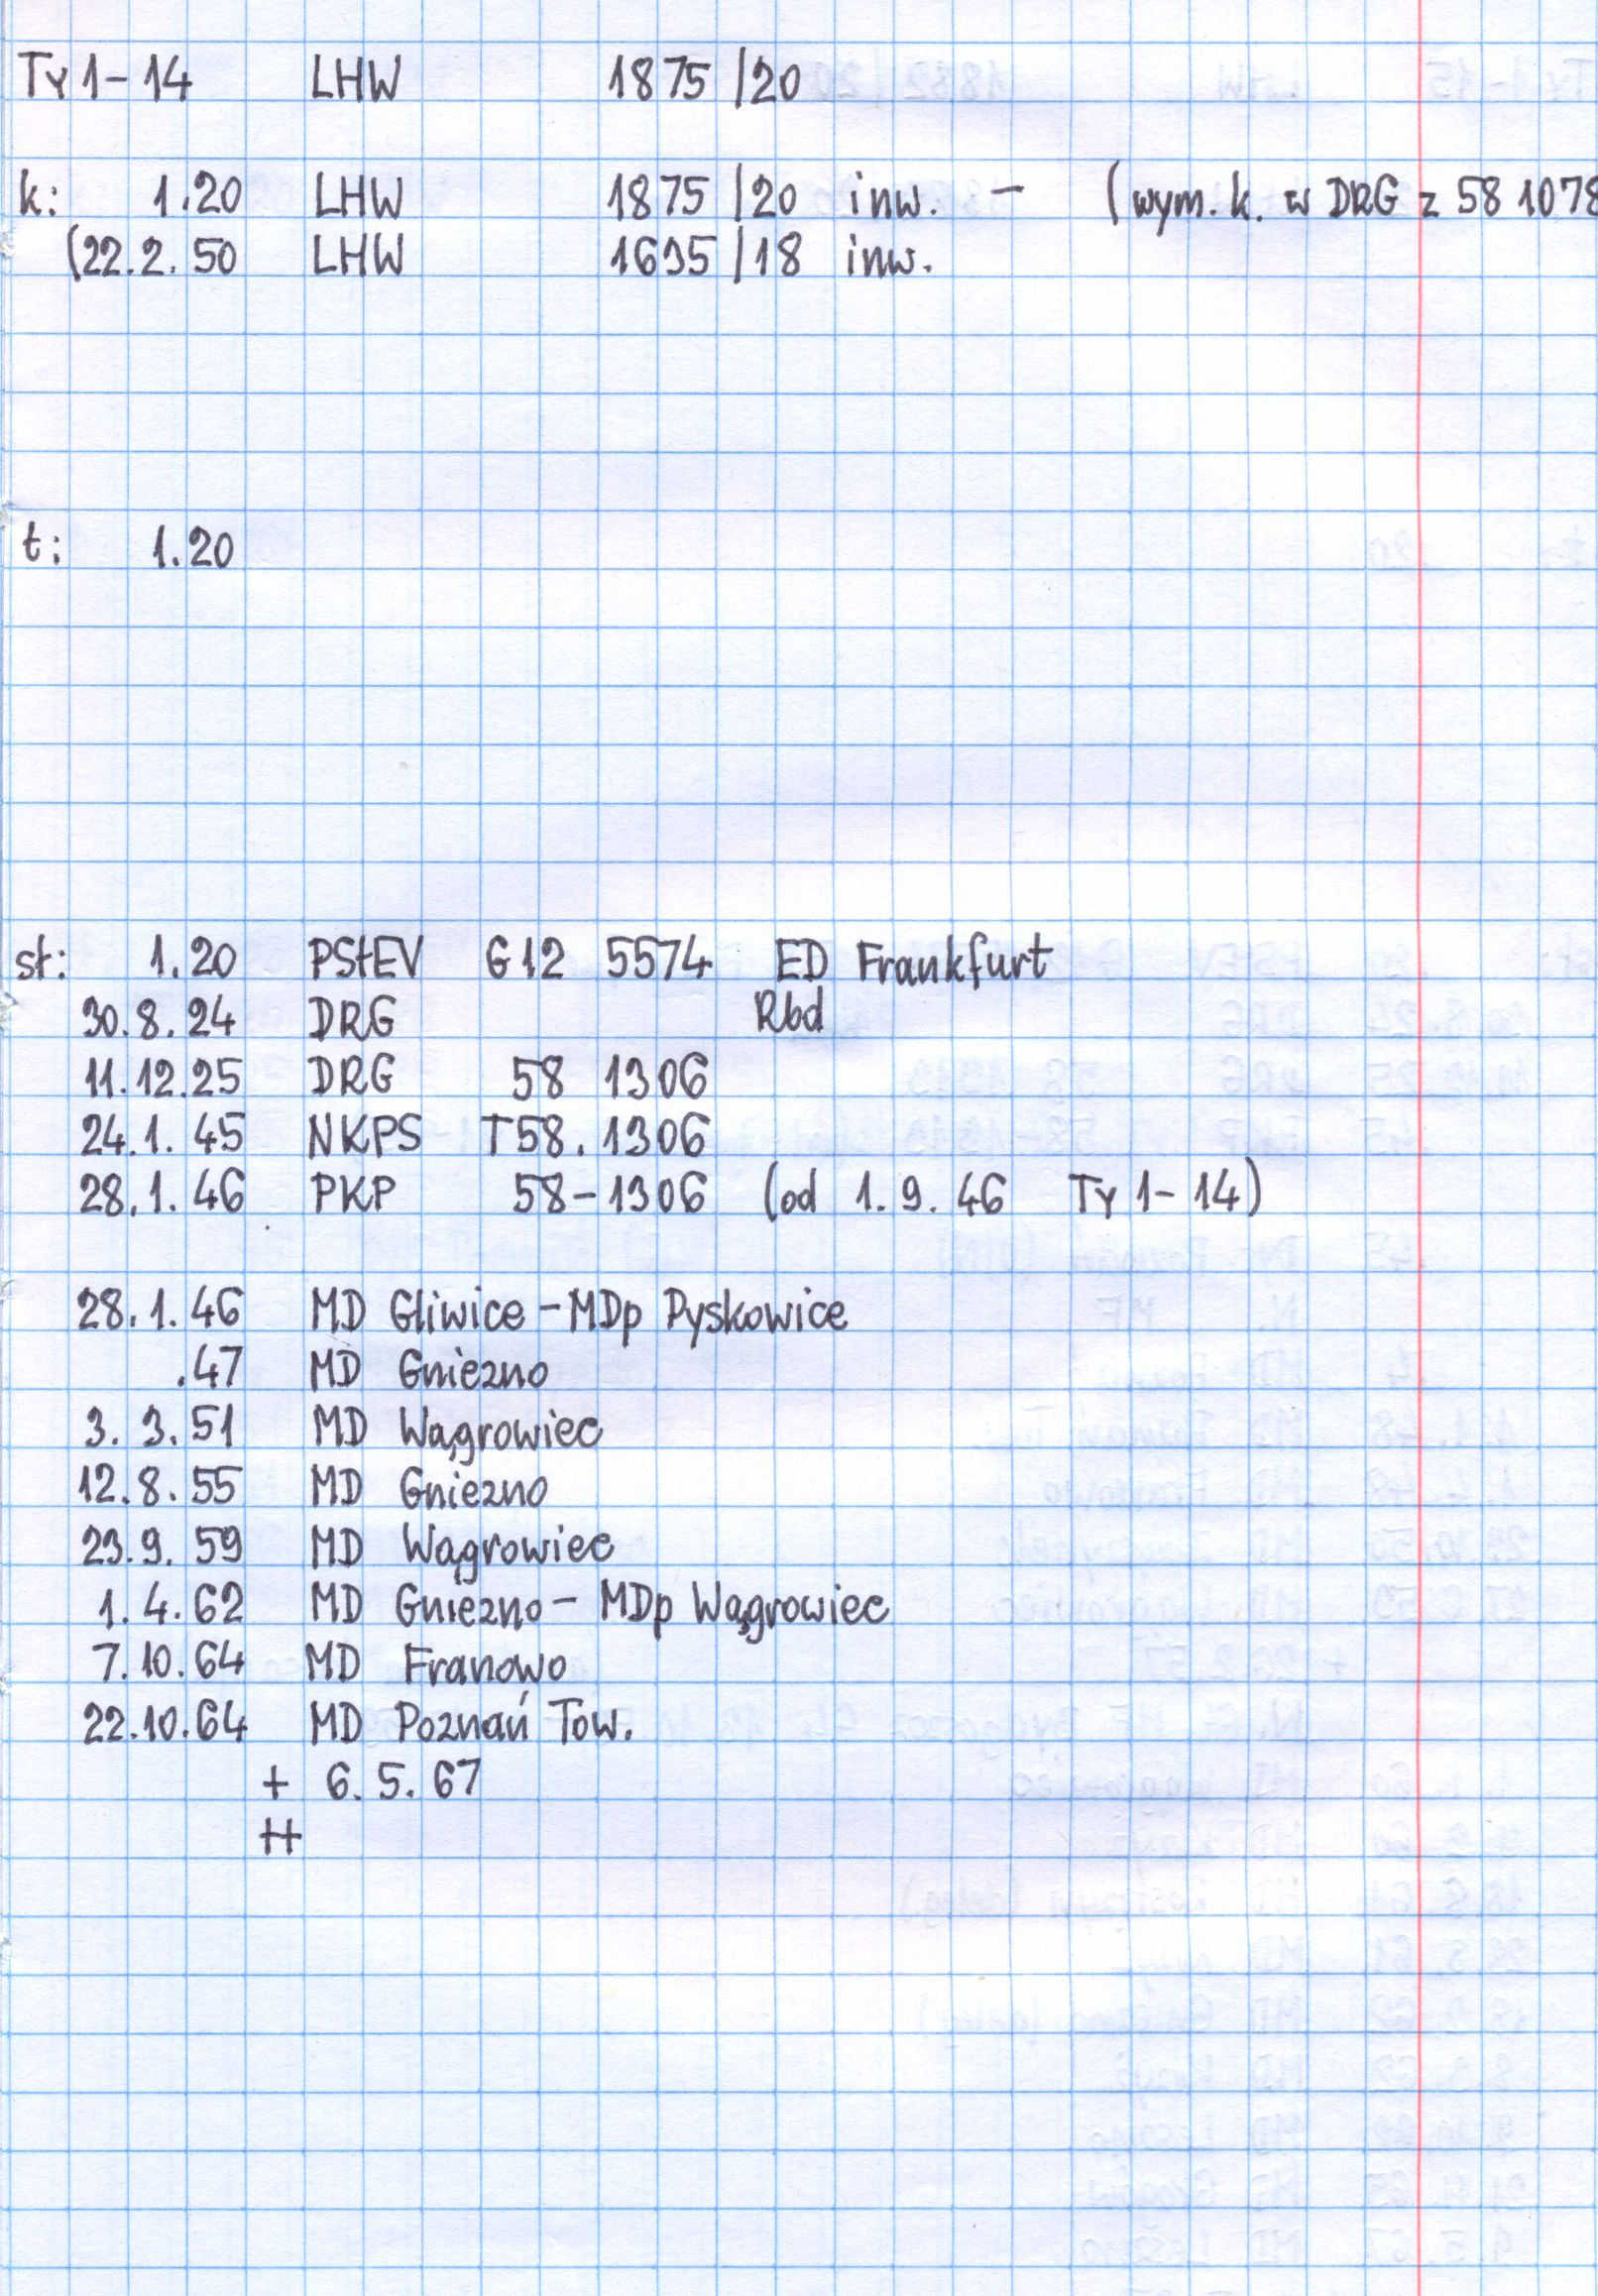 Ty 1-14 LHW 1875/20
k: 1.20 LHW 1875/20 inw. - (wym. k. w DRG z 58 1078
(22.2.50 LHW 1695/18 inw.
t: 1.20
st: 1.20 PStEV G12 5574 ED Frankfurt
30.8.24 DRG Rbd
11.12.25 DRG 58 1306
24.1.45 NKPS T58.1306
28.1.46 PKP 58-1306 (od 1.9.46 Ty 1-14)
28.1.46 MD Gliwice - MDp Pyskowice
.47 MD Gniezno
3.3.51 MD Wągrowiec
12.8.55 MD Gniezno
23.9.59 MD Wągrowiec
1.4.62 MD Gniezno - MDp Wągrowiec
7.10.64 MD Franowo
22.10.64 MD Poznań Tow.
+ 6.5.67
++